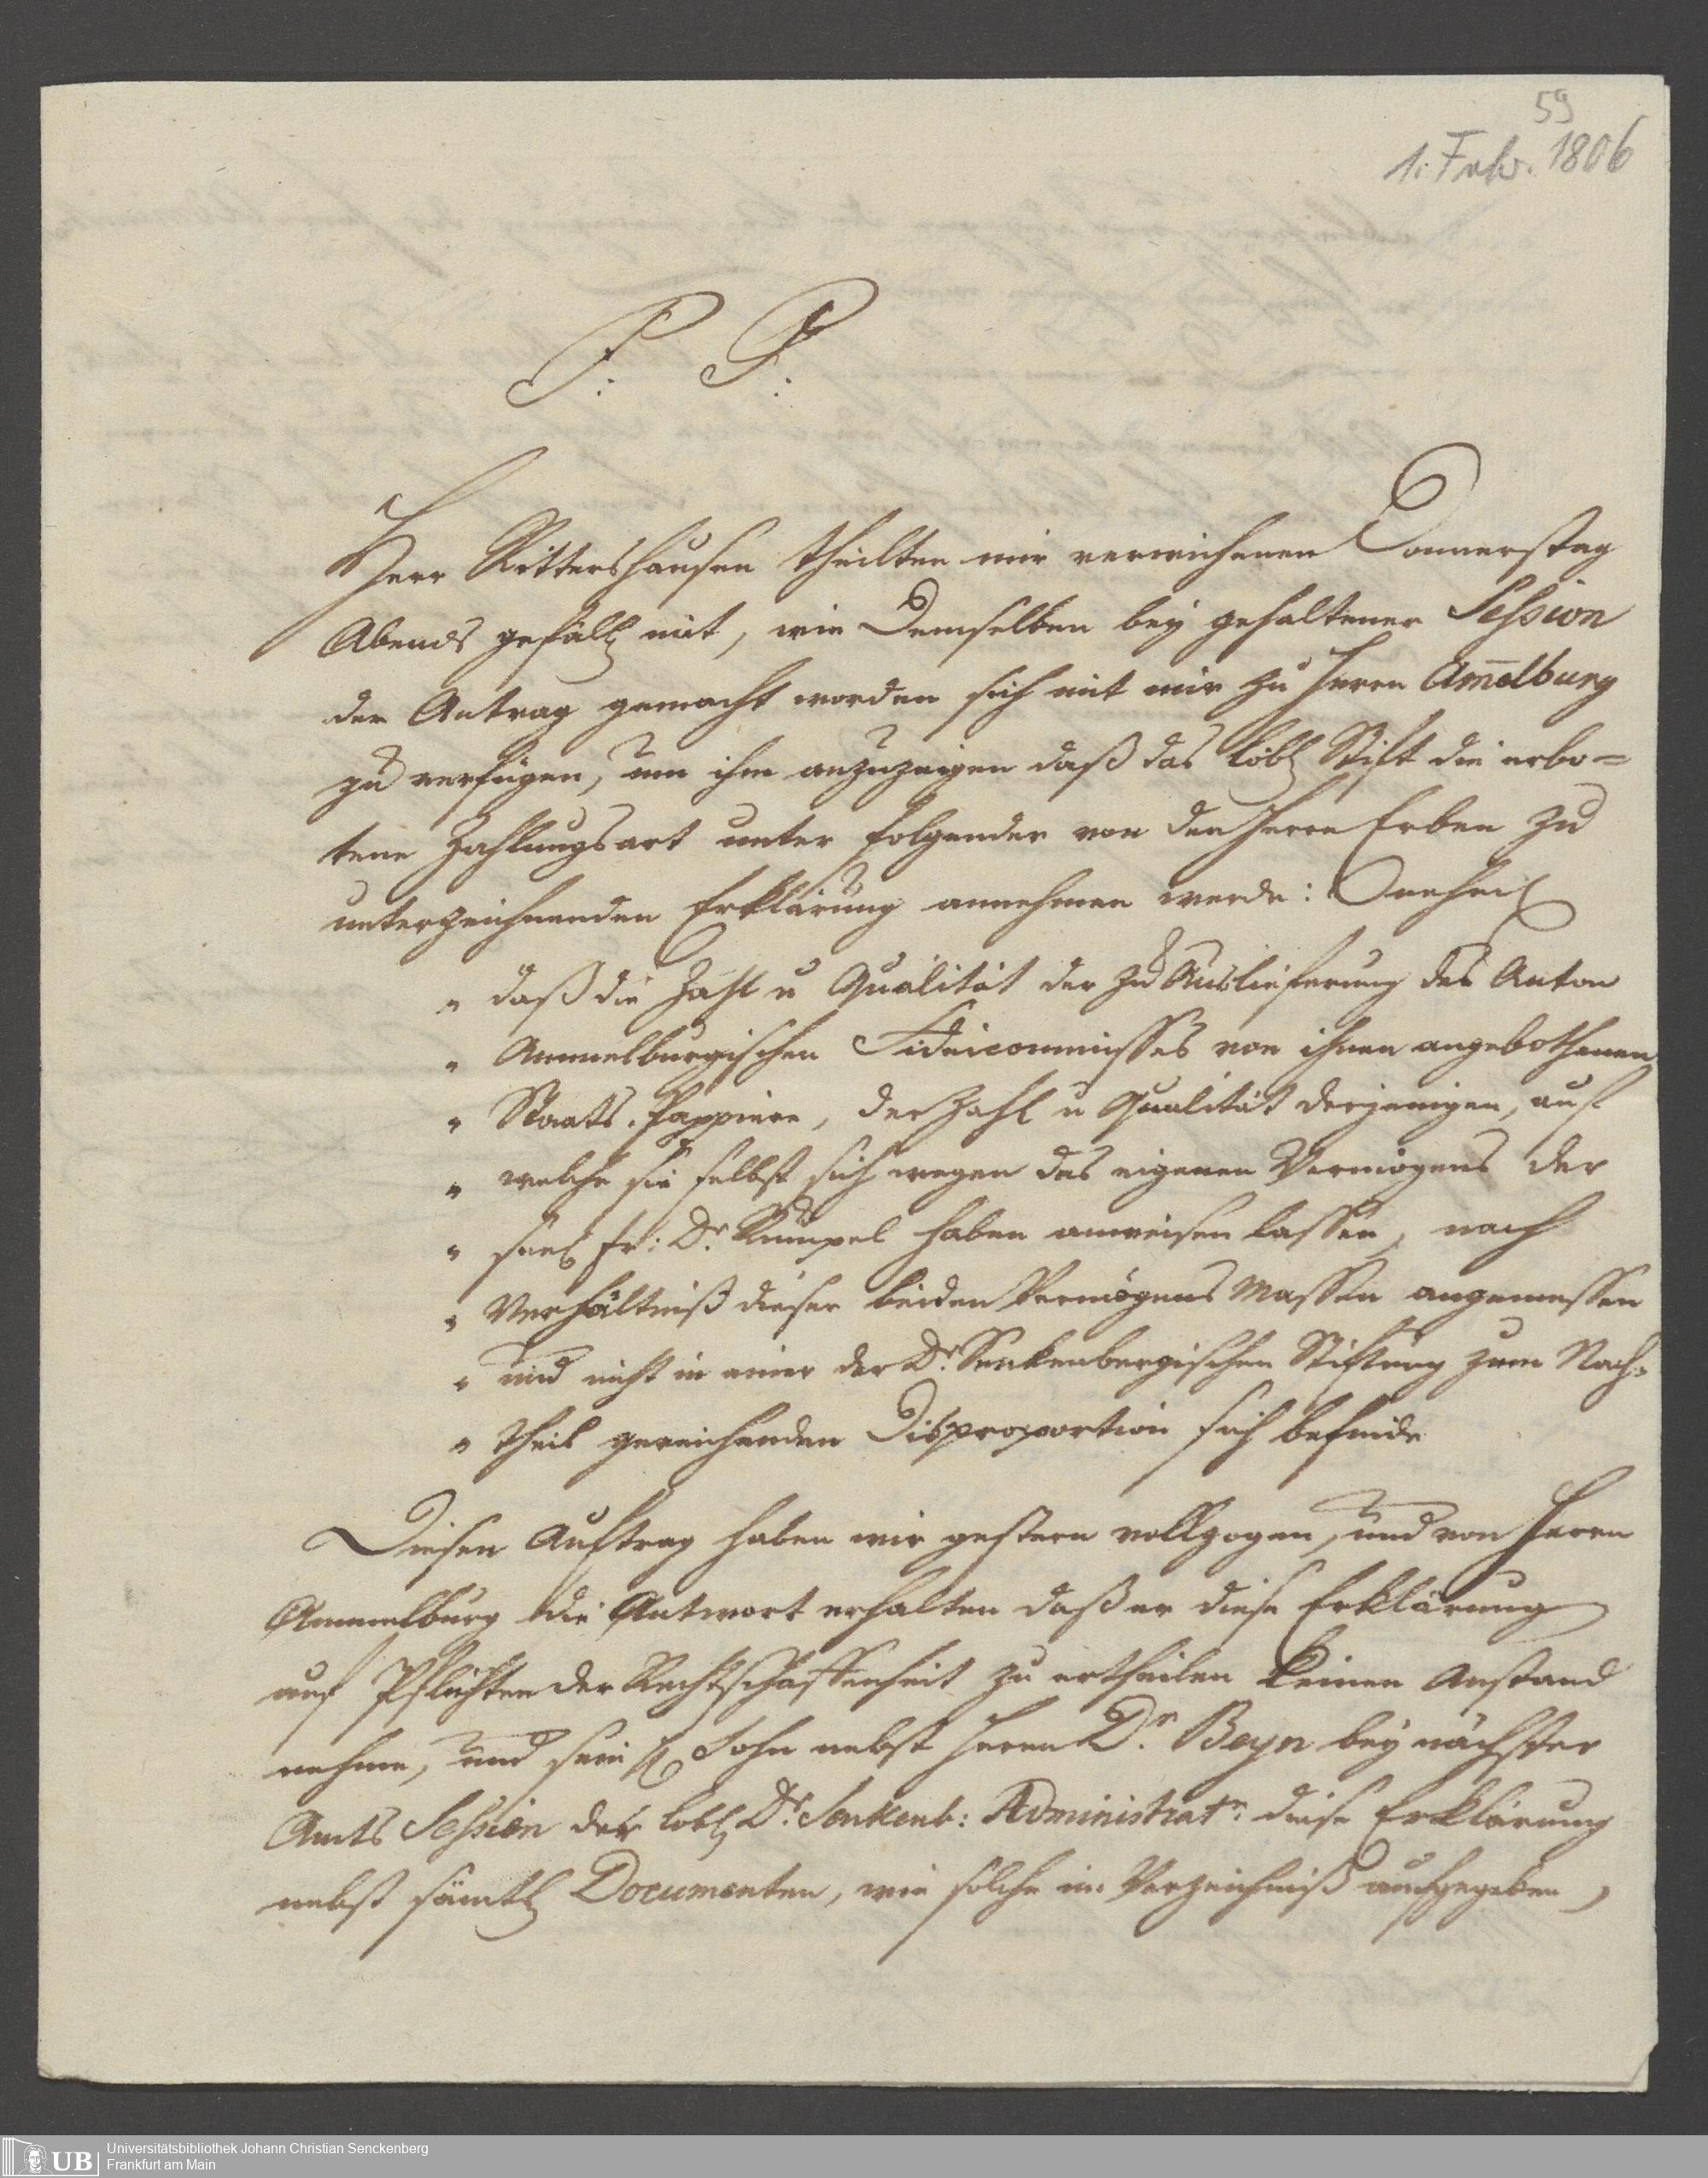 59
1. Febr. 1806
P. P.
Herr Rittershausen theilten mir verwichenen Donnerstag
Abends gefäll mit, wie Demselben bey gehaltener Session
der Antrag gemacht worden sich mit mir zu Herrn Am̅elburg
zu verfügen, um ihm anzuzeigen daß das Löbl Stift die erbo=
tene Zahlungsart unter folgender von den Herrn Erben zu
unterzeichnenden Erklärung annehmen werde:
" daß die Zahl u Qualität der zu Auslieferung des Anton
" Ammelburgischen Fideicommisses von ihnen angebothenen
" Staats. Pappiere, der Zahl u Qualität derjenigen, auf
" welche sie selbst sich wegen des eigenen Vermögens der
" seel Fr: Dr. Rümpel haben anweisen lassen, nach
" Verhältniß dieser beiden Vermögens Massen angemessen
" und nicht in einer der Dr. Senkenbergischen Stiftung zum Nach=
" theil gereichenden Disproportion sich befinde
Diesen Auftrag haben wir gestern vollzogen, und von Herrn
Ammelburg die Antwort erhalten daß er diese Erklärung
auf Pflichten der Rechtschaffenheit zu ertheilen keinen Anstand
nehme, und sein H Sohn nebst Herrn Dr. Beyn bey nächster
Amts Session der löbl Dr. Senkenb: Administratn. diese Erklärung
nebst sämtl Documenten, wie solche im Verzeichniß aufgegeben,
UB
Universitätsbibliothek Johann Christian Senckenberg
Frankfurt am Main